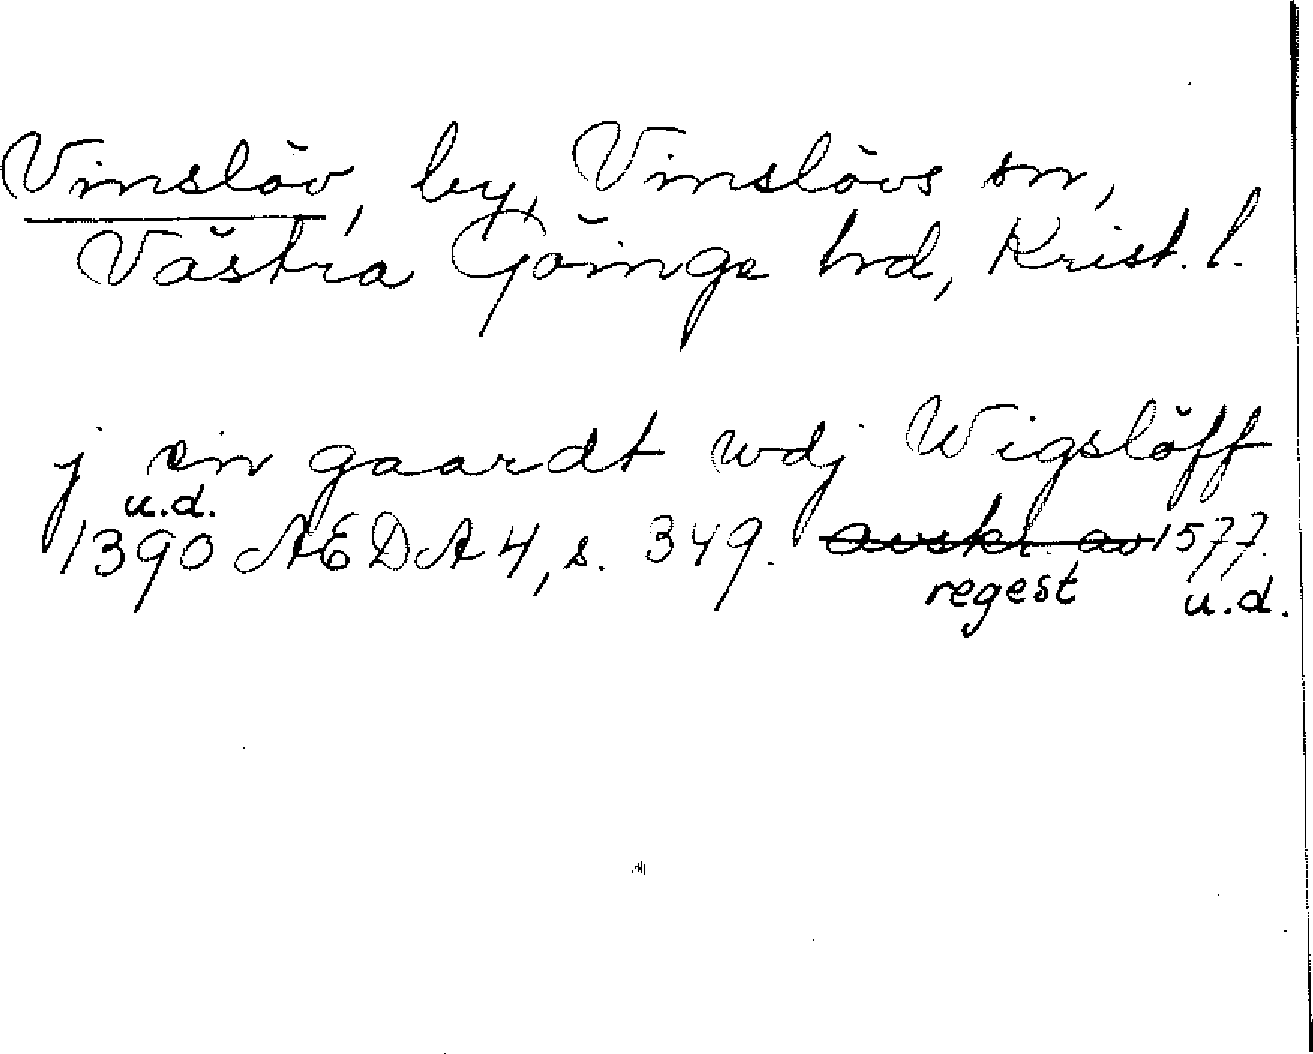 Vinslöv, by, Vinslövs sn,
Västra Göinge hd, Krist. l.
j en gaardt wdj Wigslöff
u.d.
1390 AEDA 4, s. 349. avskr. av 1577.
regest u.d.